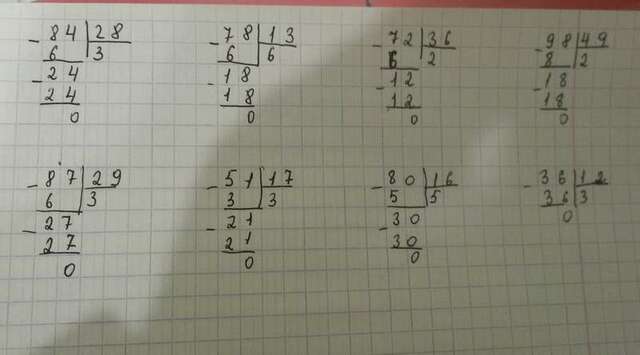 - 84 | 28
6 | 3
- 24
24
0
- 78 | 13
6 | 6
- 18
18
0
- 72 | 36
6 | 2
- 12
12
0
- 98 | 49
8 | 2
- 18
18
0
- 87 | 29
6 | 3
- 27
27
0
- 51 | 17
3 | 3
- 21
21
0
- 80 | 16
5 | 5
- 30
30
0
- 36 | 12
36 | 3
0